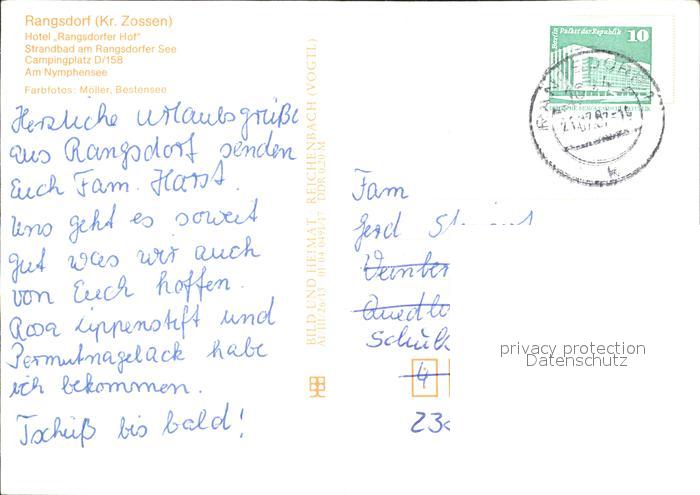 Rangsdorf (Kr. Zossen)
Hotel „Rangsdorfer Hof"
Strandbad am Rangsdorfer See
Campingplatz D/158
Am Nymphensee
Farbfotos: Möller, Bestensee
Herzliche Urlaubsgrüße
aus Rangsdorf senden
Euch Fam. Harst.
Uns geht es soweit
gut was wir auch
von Euch hoffen.
Rosa Lippenstift und
Permutnagelack habe
ich bekommen.
Tschüß bis bald!
BILD UND HEIMAT REICHENBACH (VOGTL)
DDR 0,20 M
Berlin Palast der Republik 10
Fam
Gerd
Schül
4
23
privacy protection
Datenschutz